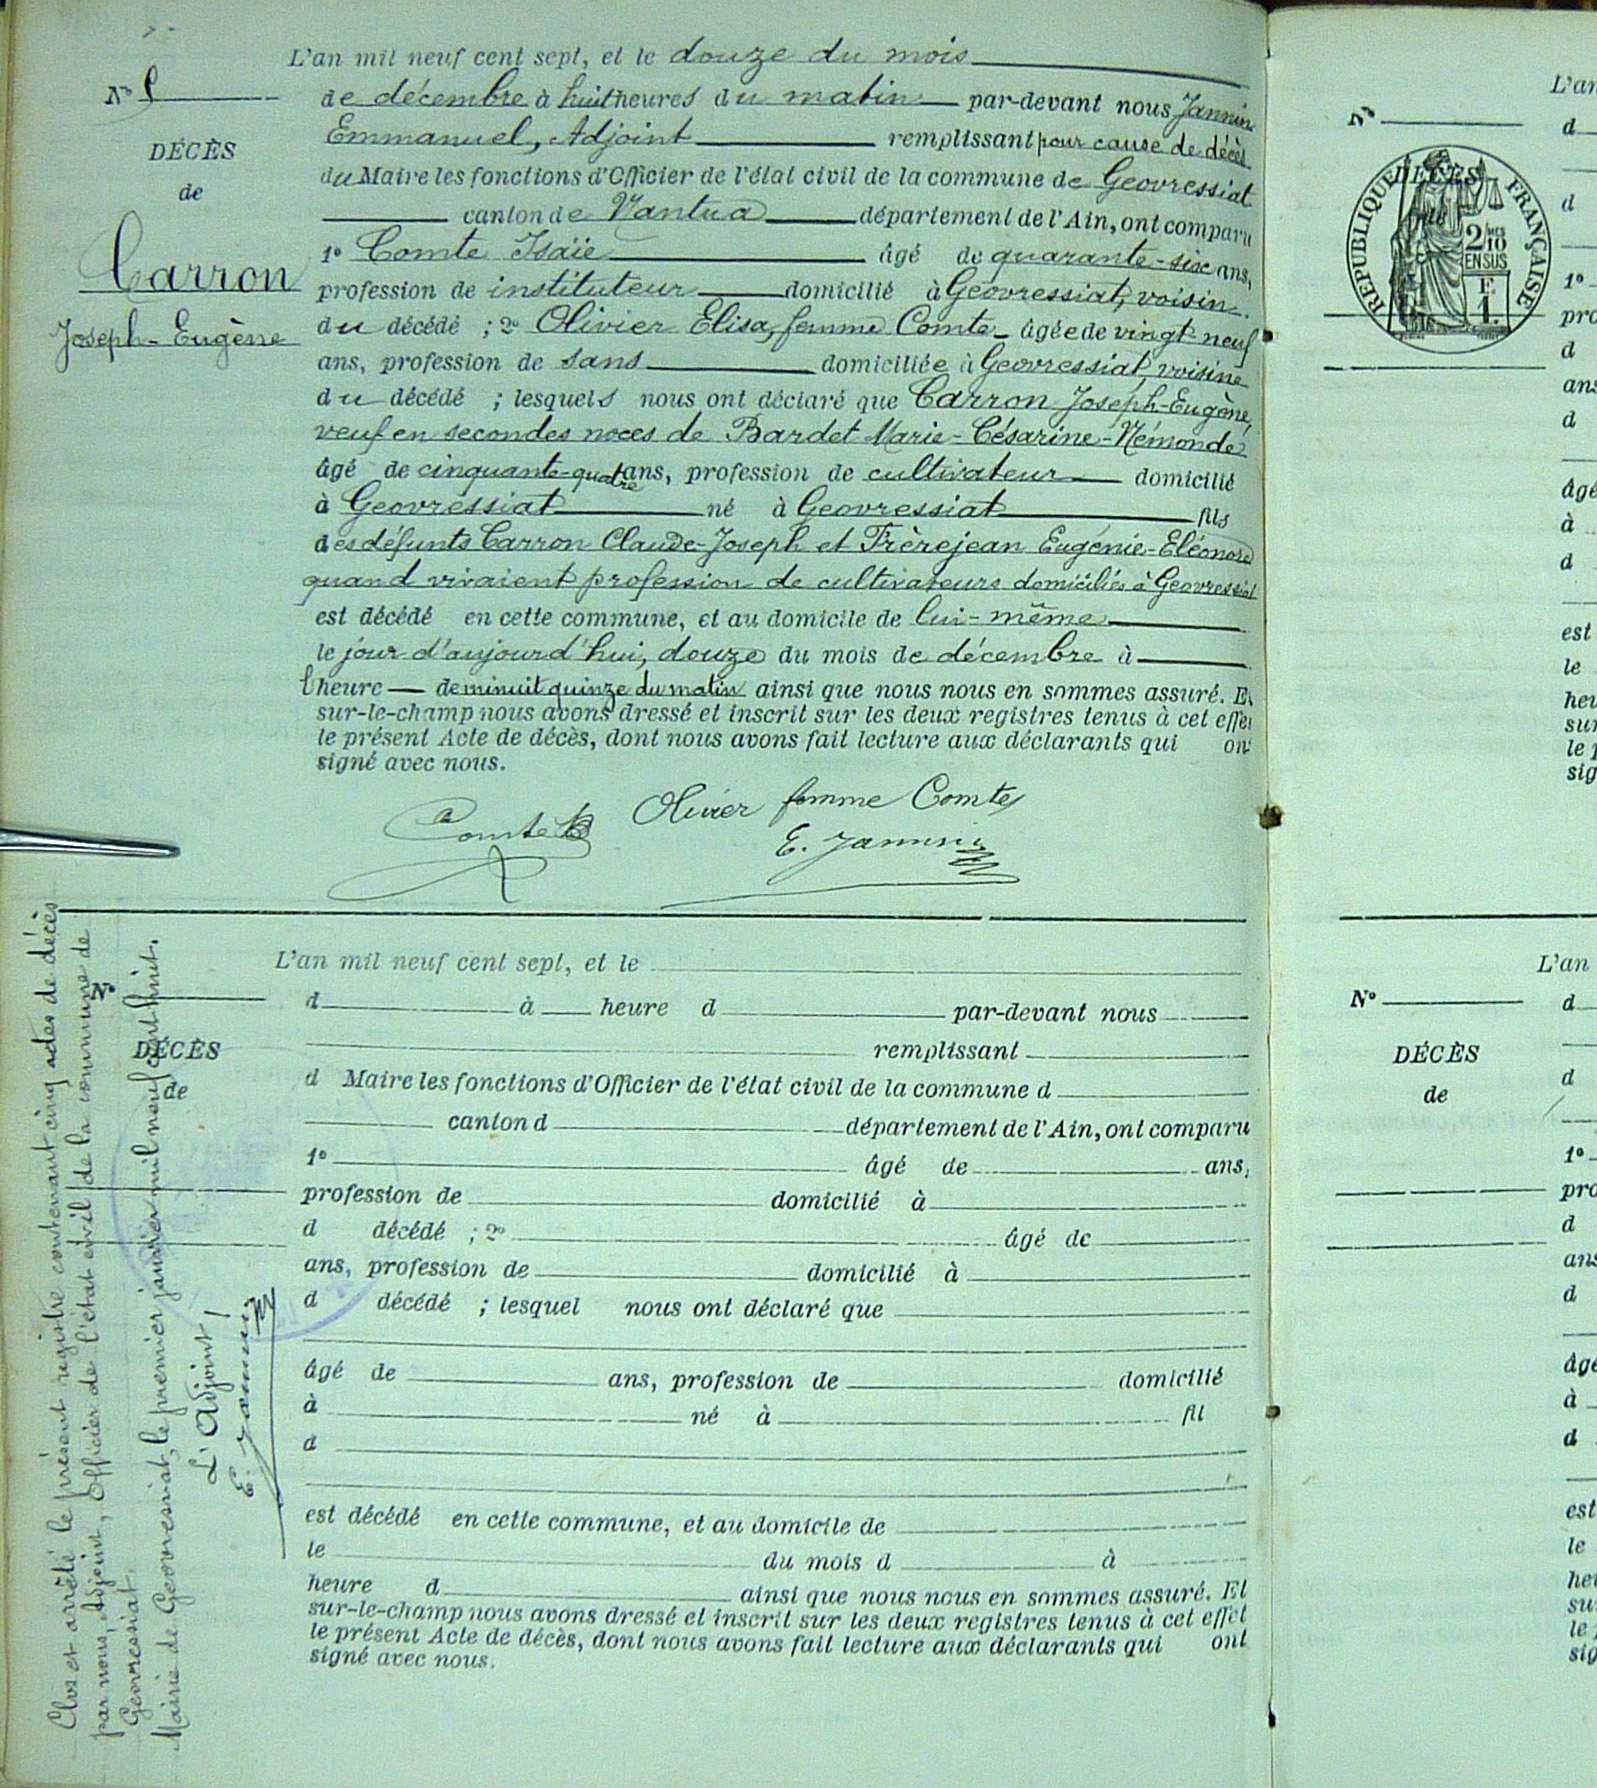 L'an mil neuf cent sept, et le douze du mois
de décembre à huit heures du matin par-devant nous Jannin
Emmanuel, Adjoint remplissant pour cause de décès
du Maire les fonctions d'Officier de l'état civil de la commune de Geovressiat
canton de Nantua département de l'Ain, ont comparu
1º Comte Isaïe âgé de quarante-six ans,
profession de instituteur domicilié à Géovressiat, voisin
du décédé ; 2º Olivier Elisa, femme Comte âgée de vingt-neuf
ans, profession de sans domiciliée à Geovressiat, voisine
du décédé ; lesquels nous ont déclaré que Carron Joseph-Eugène,
veuf en secondes noces de Bardet Marie-Césarine-Némonde
âgé de cinquante-quatre ans, profession de cultivateur domicilié
à Geovressiat né à Geovressiat fils
des défunts Carron Claude-Joseph et Frèrejean Eugénie-Eléonore
quand vivaient profession de cultivateurs domiciliés à Geovressiat
est décédé en cette commune, et au domicile de lui-même
le jour d'aujourd'hui, douze du mois de décembre à
l'heure de minuit quinze du matin ainsi que nous nous en sommes assuré. Et
sur-le-champ nous avons dressé et inscrit sur les deux registres tenus à cet effet
le présent Acte de décès, dont nous avons fait lecture aux déclarants qui ont
signé avec nous.
Comte
Olivier femme Comte
E. Jannin
Nº 5
DÉCÈS
de
Carron
Joseph-Eugène
L'an mil neuf cent sept, et le
d à heure d par-devant nous
remplissant
d Maire les fonctions d'Officier de l'état civil de la commune d
canton d département de l'Ain, ont comparu
1º âgé de ans,
profession de domicilié à
d décédé ; 2º âgé de
ans, profession de domicilié à
d décédé ; lesquel nous ont déclaré que
âgé de ans, profession de domicilié
à né à fil
d
est décédé en cette commune, et au domicile de
le du mois d à
heure d ainsi que nous nous en sommes assuré. Et
sur-le-champ nous avons dressé et inscrit sur les deux registres tenus à cet effet
le présent Acte de décès, dont nous avons fait lecture aux déclarants qui ont
signé avec nous.
Nº
DÉCÈS
de
Clos et arrêté le présent registre contenant cinq actes de décès
par nous, Adjoint, Officier de l'état civil de la commune de
Geovressiat.
Mairie de Geovressiat, le premier janvier mil neuf cent huit.
L'Adjoint
E. Jannin
Nº
DÉCÈS
de
REPUBLIQUE FRANÇAISE
2/10
EN SUS
F.
1.
L'an
d
d
1º
pro
d
ans
d
âgé
à
d
est
le
heu
sur
le p
sig
Nº
DÉCÈS
de
L'an
d
d
1º
pro
d
ans
d
âgé
à
d
est
le
heu
su
le
sig